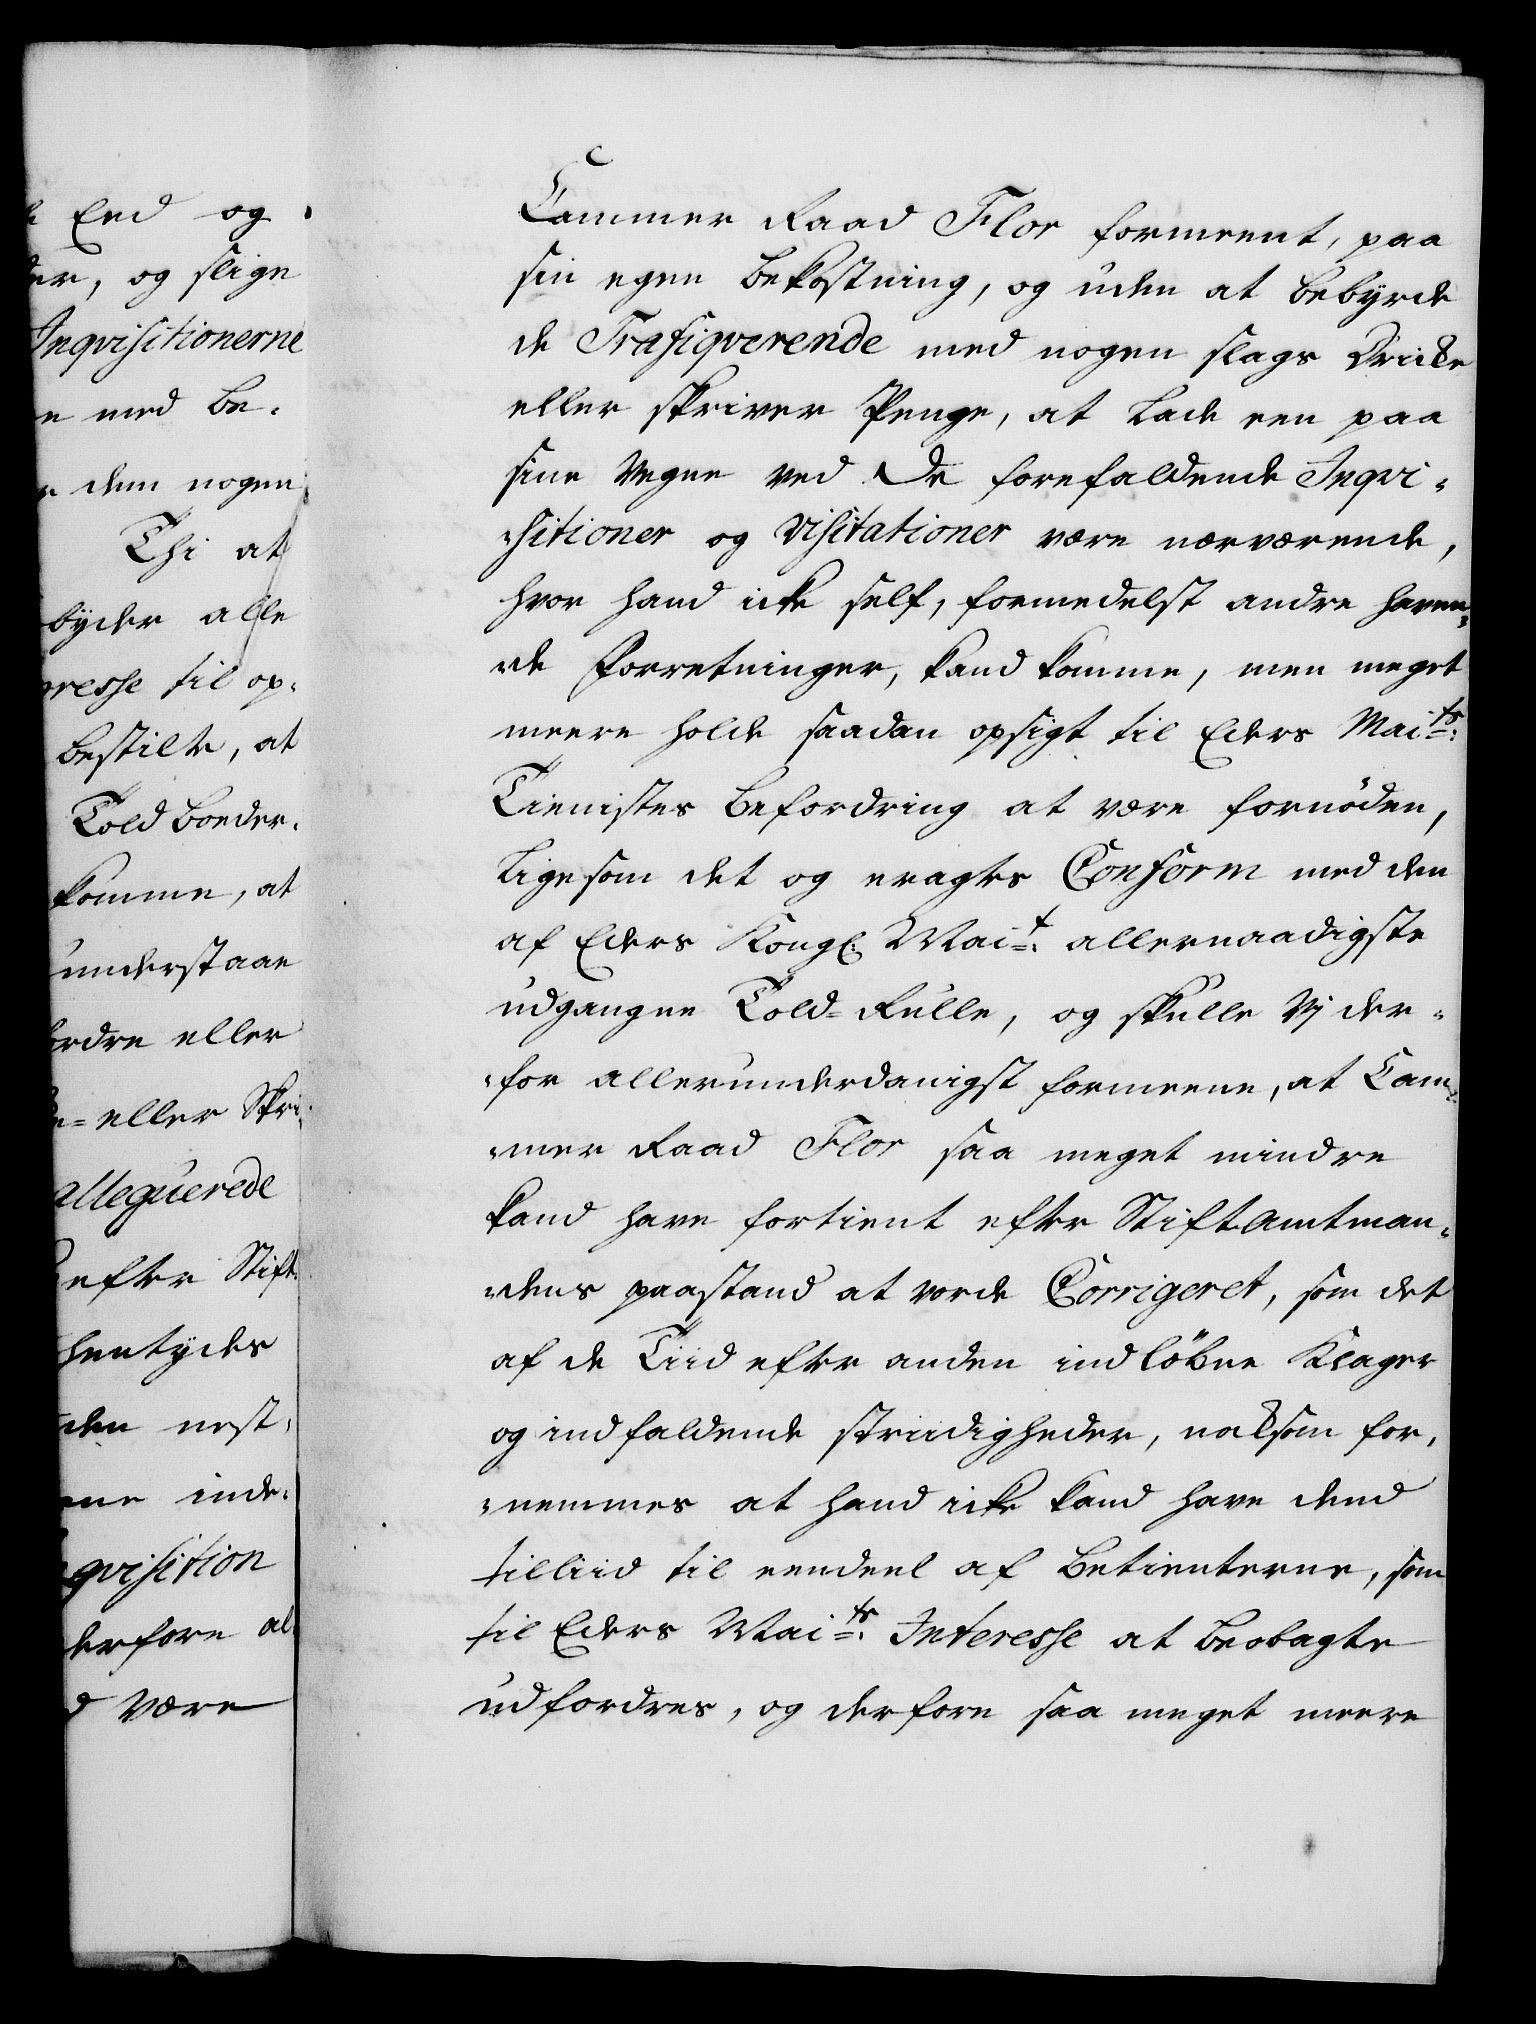 End og
er, og slige
Inqvisitionerne
med be-
dem nogen
Thi at
byder alle
resse til op-
bestilte, at
Told boeder-
komme, at
understaae
ordre eller
eller Skri-
alleguerede
efter Stift-
hentydes
den nest-
inde-
qvisition
derfore al-
være
Cammer Raad Flor formeent, paa
sin egen bekostning, og uden at bebyrde
de Trafiqverende med nogen slags Dricke
eller skriver Penge, at lade een paa
sine vegne ved de forefaldende Inqvi-
-sitioner og Visitationer være nærværende,
hvor hand icke self, formedelst andre haven-
-de Forretninger, kand komme, men meget
meere holde saadan opsigt til Eders Maits:
Tienistes befordring at være fornöden,
ligesom det og eragtes Conform med den
af Eders Kongl: Mait: allernaadigste
udgangne Told-Rulle, og skulle Vj der-
-for allerunderdanigst formeene, at Cam-
-mer Raad Flor saa meget mindre
kand have fortient efter Stiftamtman-
-dens paastand at vorde Corrigeret, som det
af de Tiid efter anden indlöbne Klager
og indfaldende striidigheder, noksom for-
-nemmes at hand icke kand have dend
tilliid til eendeel af betienterne, som
til Eders Maits: Interesse at beobagte
udfordres, og derfore saa meget meere